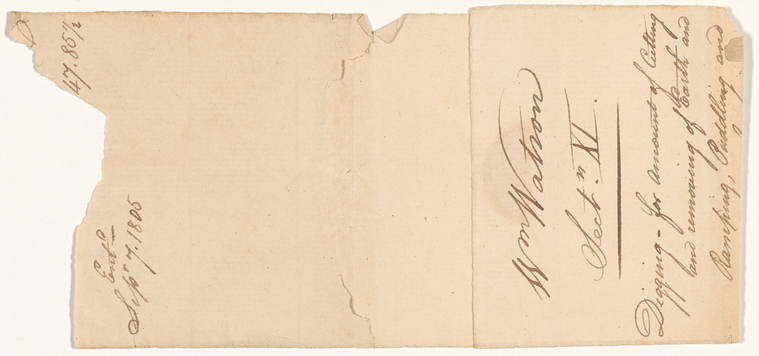 Wm Watson
Sectn. XI.
Digging - for amount of Cutting
and removing of Earth and
Ramping, Puddling and
Entd
Sepr 7. 1805
47.85½